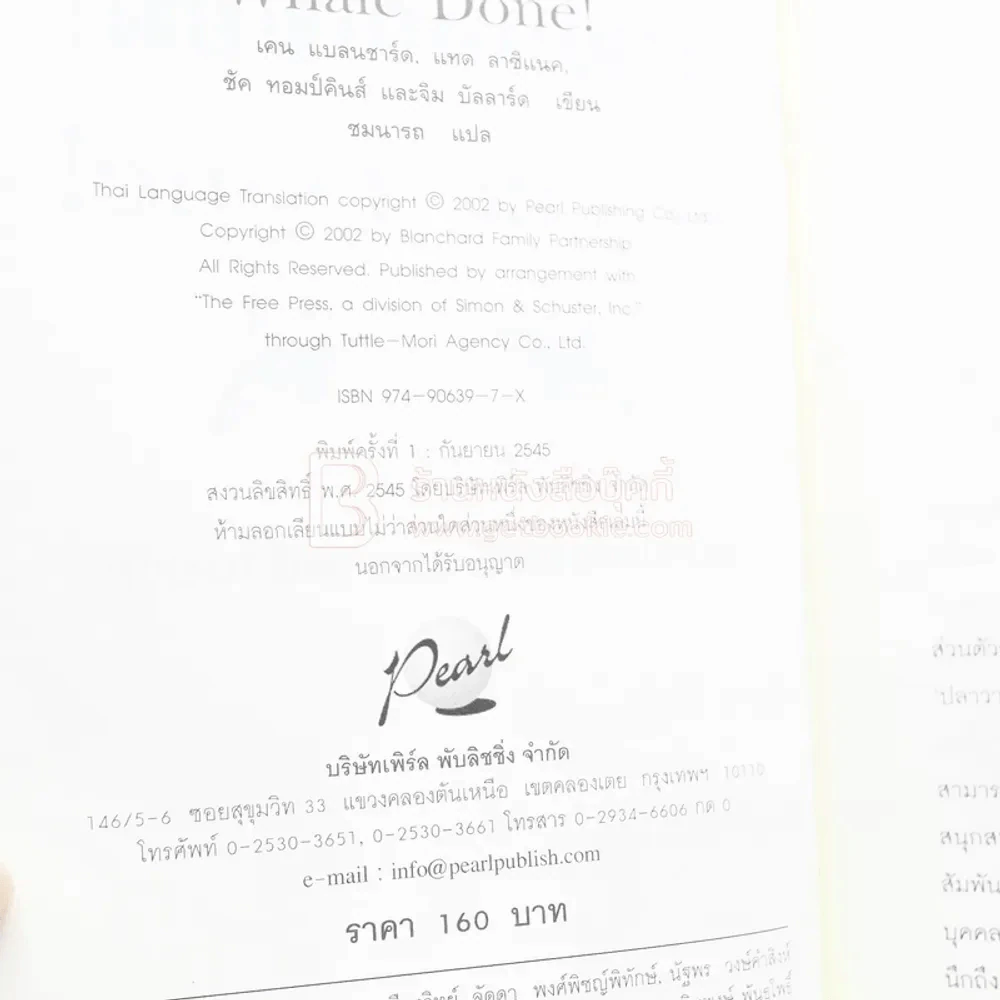 Whale Done!
เคน แบลนชาร์ด, แทด ลาซิแนค,
ชัค ทอมป์คินส์ และจิม บัลลาร์ด เขียน
ชมนารถ แปล
Thai Language Translation copyright © 2002 by Pearl Publishing Co., Ltd.
Copyright © 2002 by Blanchard Family Partnership
All Rights Reserved. Published by arrangement with
"The Free Press, a division of Simon & Schuster, Inc."
through Tuttle-Mori Agency Co., Ltd.
ISBN 974-90639-7-X
พิมพ์ครั้งที่ 1 : กันยายน 2545
สงวนลิขสิทธิ์ พ.ศ. 2545 โดยบริษัทเพิร์ล พับลิชชิ่ง จำกัด
ห้ามลอกเลียนแบบไม่ว่าส่วนใดส่วนหนึ่งของหนังสือเล่มนี้
นอกจากได้รับอนุญาต
B
www.getbookie.com
Pearl
บริษัทเพิร์ล พับลิชชิ่ง จำกัด
146/5-6 ซอยสุขุมวิท 33 แขวงคลองตันเหนือ เขตคลองเตย กรุงเทพฯ 10110
โทรศัพท์ 0-2530-3651, 0-2530-3661 โทรสาร 0-2934-6606 กด 0
e-mail : info@pearlpublish.com
ราคา 160 บาท
ลัดดา พงศ์พิชญ์พิทักษ์, นัฐพร วงษ์คำสิงห์
พันธุโพธิ์
ส่วนตัว
ปลาวา
สามาร
สนุกส
สัมพัน
บุคคล
นึกถึง